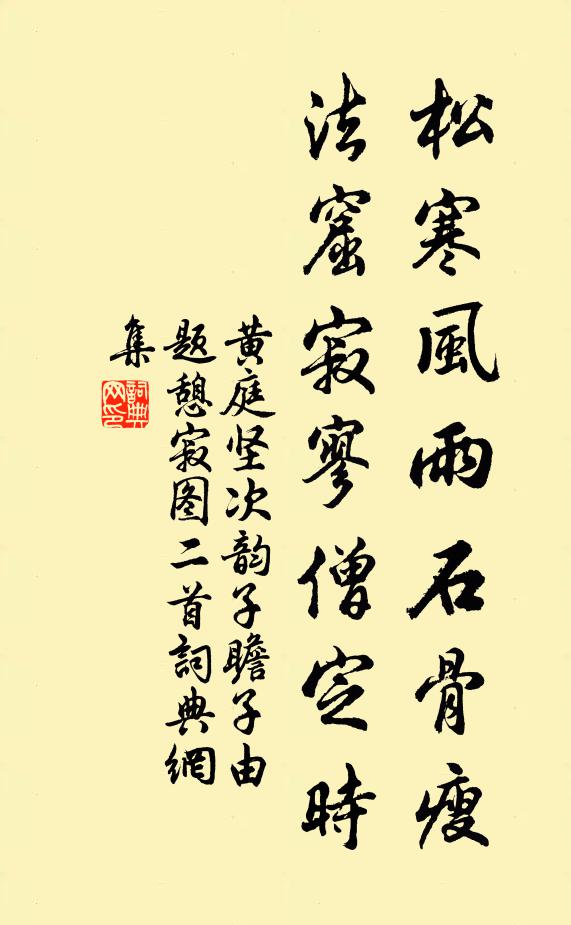 松寒風雨石骨瘦
法窟寂寥僧定時
黄庭坚次韵子瞻子由
题憩寂图二首詞典網
集
詞典
网印